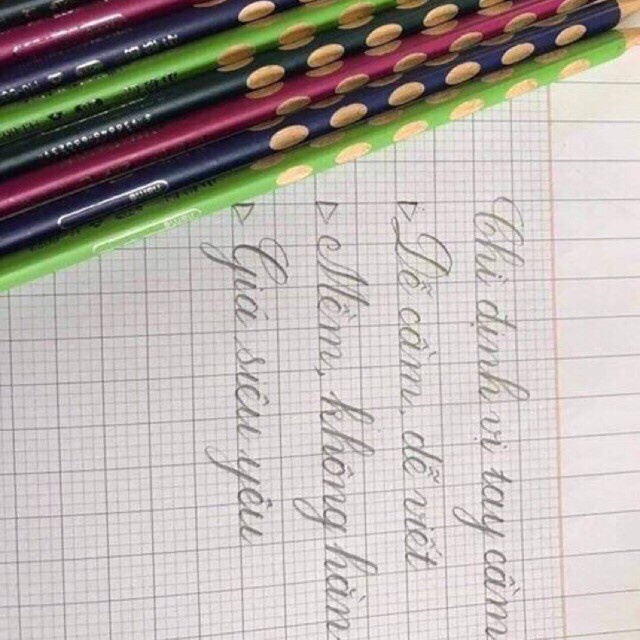 Chì định vị tay cầm
▷ Dễ cầm, dễ viết
▷ Mềm, không hằn
▷ Giá siêu yêu